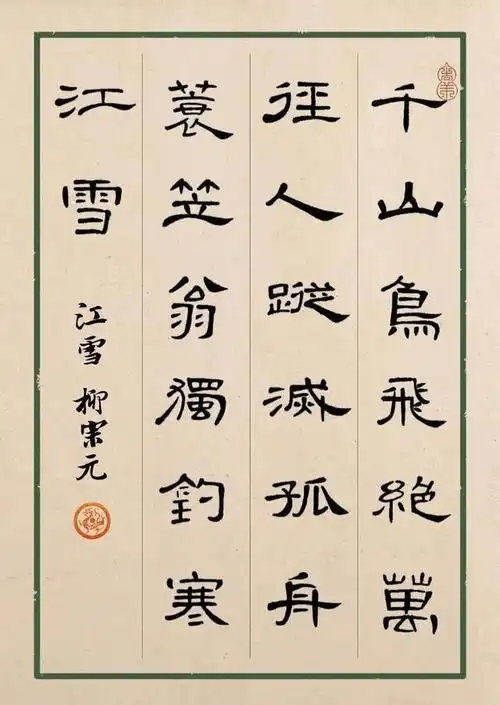 千山鳥飛絶萬
徑人蹤滅孤舟
蓑笠翁獨釣寒
江雪
江雪 柳宗元